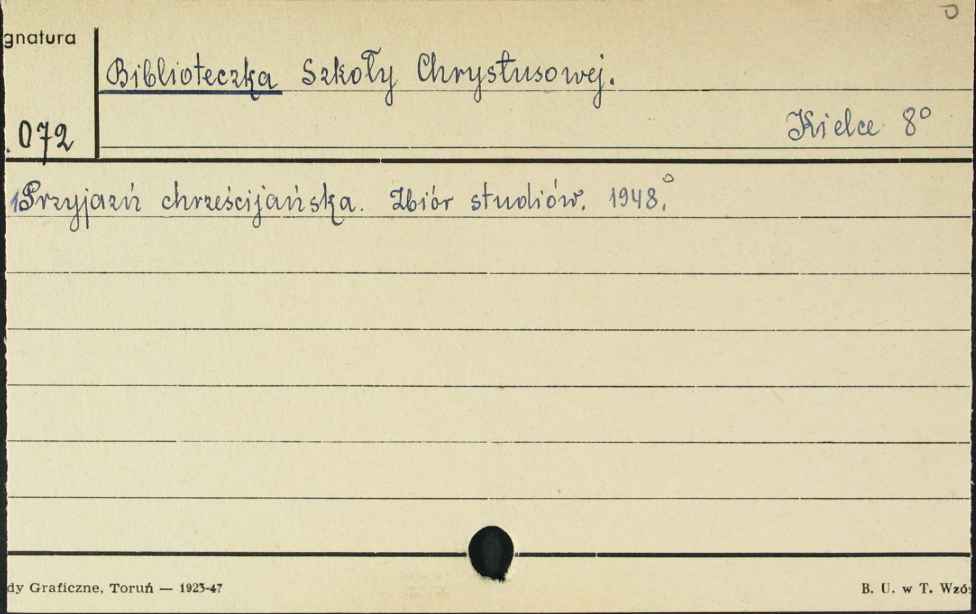 gnatura
Biblioteczka Szkoły Chrystusowej.
.072
Kielce 8°
1 Przyjaźń chrześcijańska. Zbiór studiów. 1948.°
dy Graficzne, Toruń — 1923-47
B. U. w T. Wzó